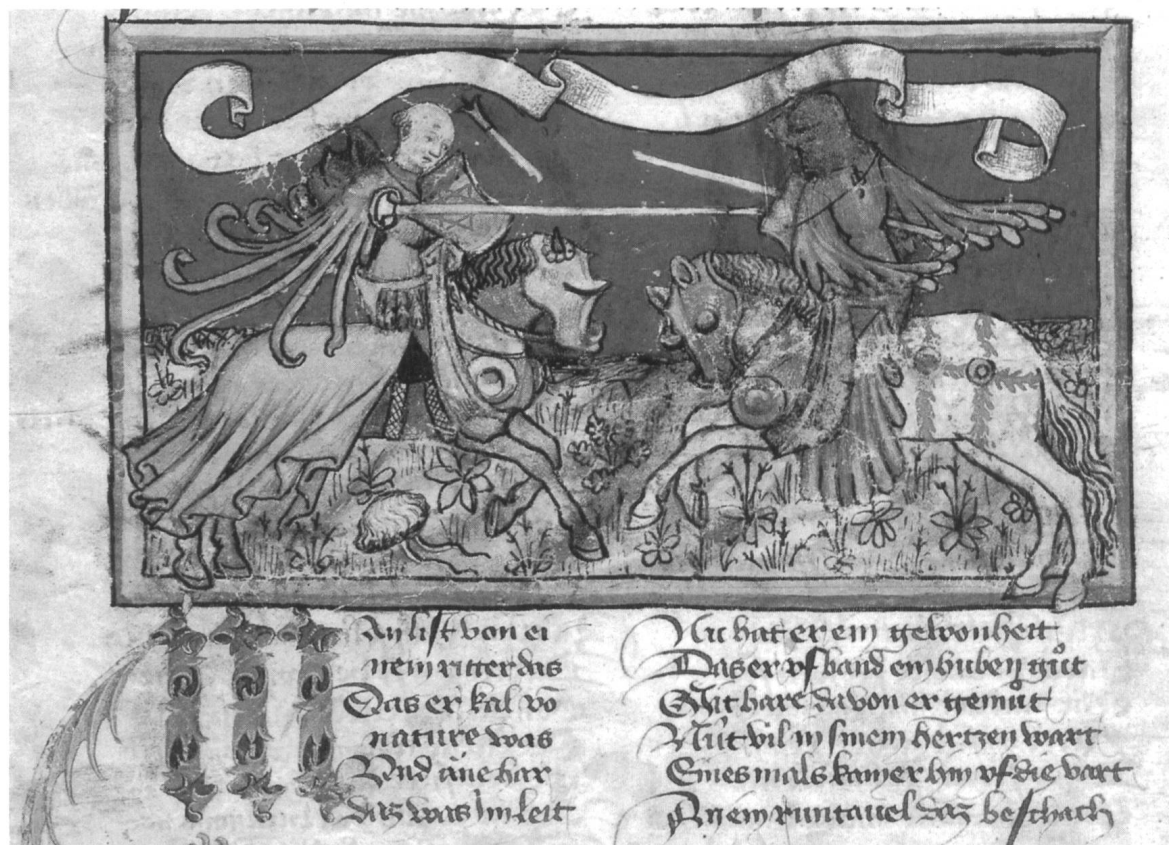 Man list von ei
nem ritter das
Das er kal vō
nature was
Vnd ane har
daz was im leit
Nu hat er ein gewonheit
Das er vf band ein huben gůt
Mit hare da von er gemůt
Nüt vil in sinem hertzen wart
Eines mals kam er hin vf die vart
In ein runtauel daz beschach